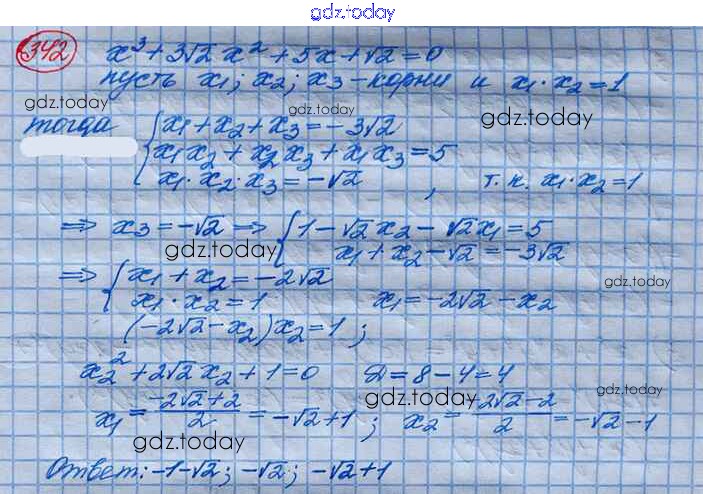 gdz.today
342 x³ + 3√2 x² + 5x + √2 = 0
пусть x₁; x₂; x₃ - корни и x₁ · x₂ = 1
gdz.today
gdz.today
gdz.today
тогда { x₁ + x₂ + x₃ = -3√2
x₁x₂ + x₂x₃ + x₁x₃ = 5
x₁ · x₂ · x₃ = -√2 , т.к. x₁ · x₂ = 1
⇒ x₃ = -√2 ⇒ { 1 - √2 x₂ - √2 x₁ = 5
gdz.today
x₁ + x₂ - √2 = -3√2
⇒ { x₁ + x₂ = -2√2
gdz.today
x₁ · x₂ = 1 x₁ = -2√2 - x₂
(-2√2 - x₂)x₂ = 1 ;
x₂² + 2√2 x₂ + 1 = 0 Д = 8 - 4 = 4
gdz.today
gdz.today
x₁ = (-2√2 + 2)/2 = -√2 + 1 ; x₂ = (-2√2 - 2)/2 = -√2 - 1
gdz.today
Ответ: -1-√2; -√2; -√2+1